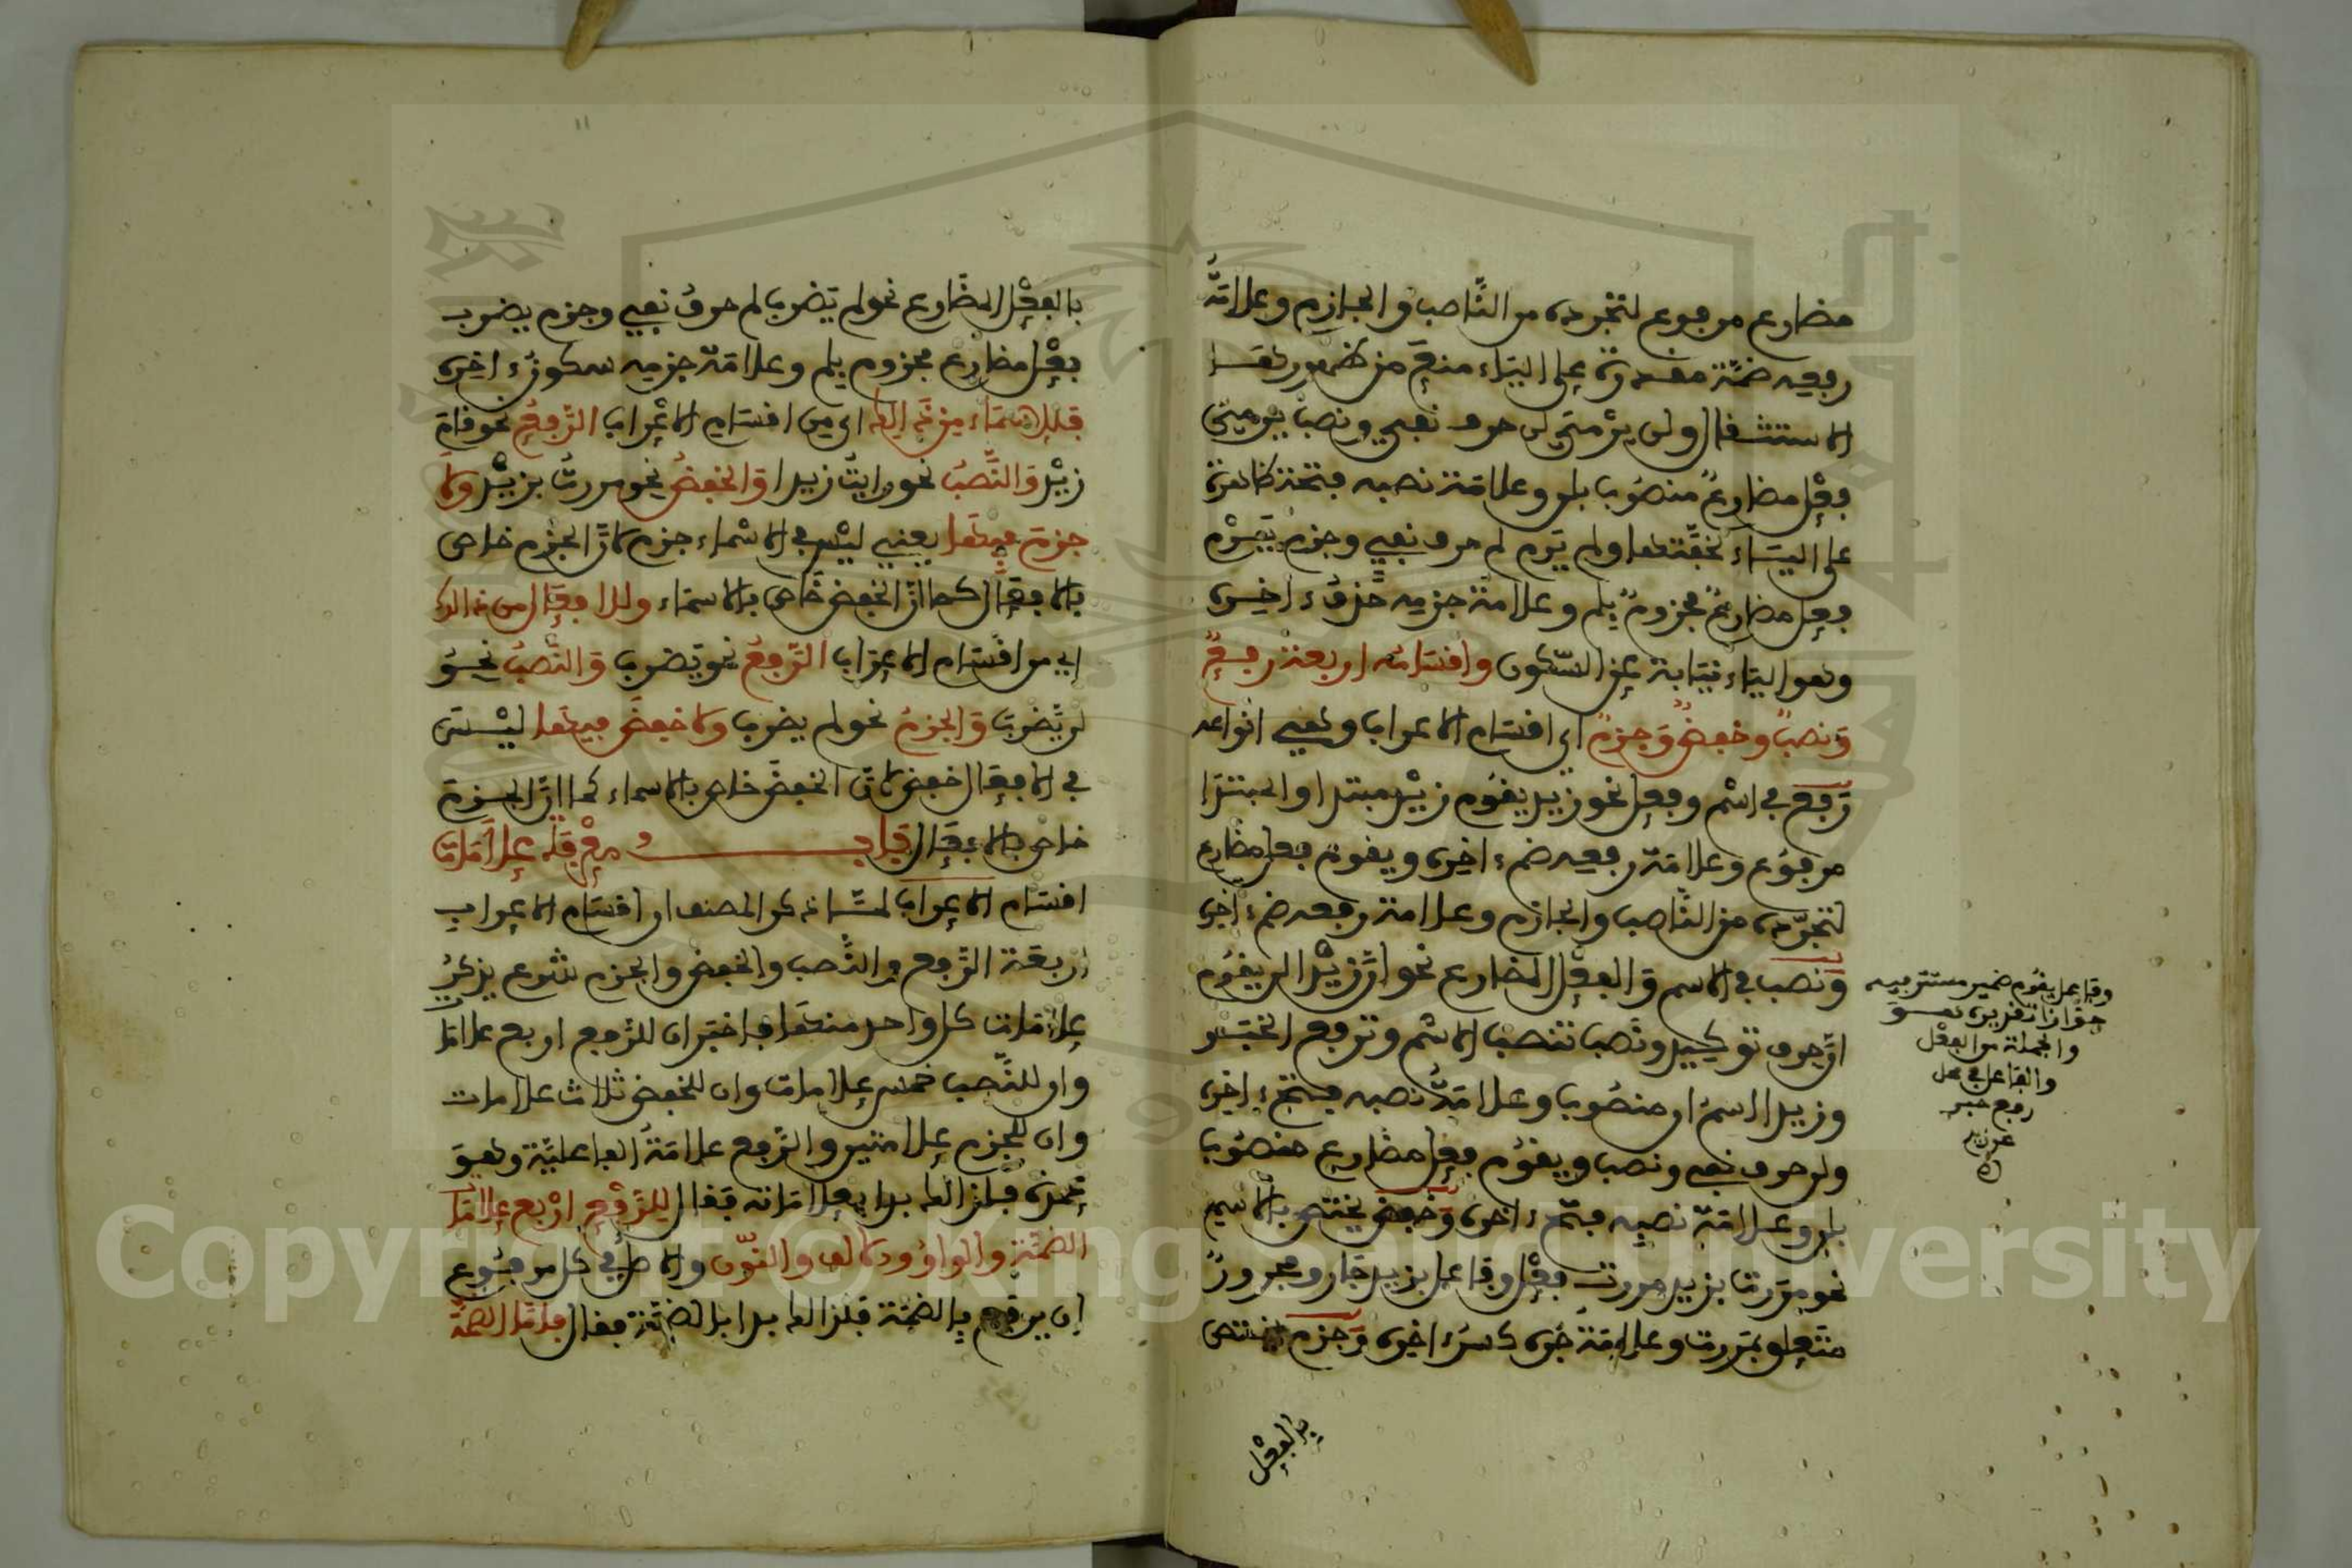 مضارع مرفوع لتجرده من الناصب والجازم وعلامة
رفعه ضمة مقدرة على الياء منع من ظهورها
الاستثقال ولن يرمي لن حرف نفي ونصب يرمي
فعل مضارع منصوب بلن وعلامة نصبه فتحة ظاهرة
على الياء لخفتها ولم يرم لم حرف نفي وجزم يرم
فعل مضارع مجزوم بلم وعلامة جزمه حذف ءاخره
وهو الياء نيابة عن السكون وأقسامه أربعة رفع
ونصب وخفض وجزم أي أقسام الإعراب وهي أنواعه
رفع في اسم وفعل نحو زيد يقوم زيد مبتدا والمبتدا
مرفوع وعلامة رفعه ضم ءاخره ويقوم فعل مضارع
لتجرده من الناصب والجازم وعلامة رفعه ضم ءاخره
ونصب في الاسم والفعل المضارع نحو إن زيدا لن يقوم
إن حرف توكيد ونصب تنصب الاسم وترفع الخبر
وزيدا اسم إن منصوب وعلامة نصبه فتح ءاخره
ولن حرف نفي ونصب ويقوم فعل مضارع منصوب
بلن وعلامة نصبه فتح ءاخره وخفض يختص بالاسم
نحو مررت بزيد مررت فعل وفاعل بزيد جار ومجرور
متعلق بمررت وعلامة جره كسر ءاخره وجزم يختص
بالفعل
وفاعل يقوم ضمير مستتر فيه
جوازا تقديره هو
والجملة من الفعل
والفاعل في محل
رفع خبر
عن زيد
بالفعل المضارع نحو لم يضرب لم حرف نفي وجزم يضرب
فعل مضارع مجزوم بلم وعلامة جزمه سكون ءاخره
فللأسماء من ذلك أي من أقسام الإعراب الرفع نحو قام
زيد والنصب نحو رايت زيدا والخفض نحو مررت بزيد ولا
جزم فيها يعني ليس في الأسماء جزم لأن الجزم خاص
بالأفعال كما أن الخفض خاص بالأسماء وللأفعال من ذلك
أي من أقسام الإعراب الرفع نحو يضرب والنصب نحو
لن يضرب والجزم نحو لم يضرب ولا خفض فيها ليس
في الأفعال خفض لأن الخفض خاص بالأسماء كما أن الجزم
خاص بالأفعال باب معرفة علامات
أقسام الإعراب لما ذكر المصنف أن أقسام الإعراب
أربعة الرفع والنصب والخفض والجزم شرع يذكر
علامات كل واحد منها فأخبر أن للرفع أربع علامات
وأن للنصب خمس علامات وأن للخفض ثلاث علامات
وأن للجزم علامتين والرفع علامة الفاعلية وهو
عمدة فلذلك بدا بعلاماته فقال للرفع أربع علامات
الضمة والواو والالف والنون والأصل في كل مرفوع
أن يرفع بالضمة فلذلك بدا بالضمة فقال فأما الضمة